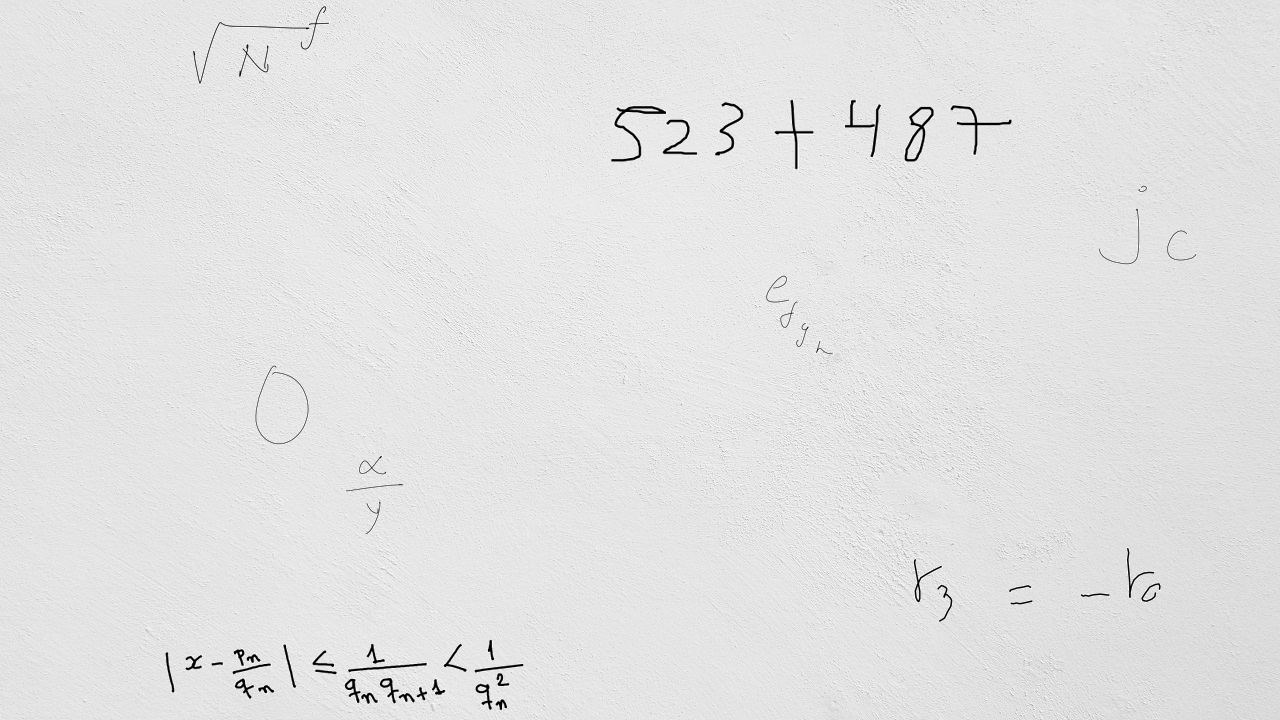 √N^f
523 + 487
j c
e_{f_{g_h}}
0
α/y
r₃ = -r₀
|x - pₙ/qₙ| ≤ 1/(qₙqₙ₊₁) < 1/qₙ²